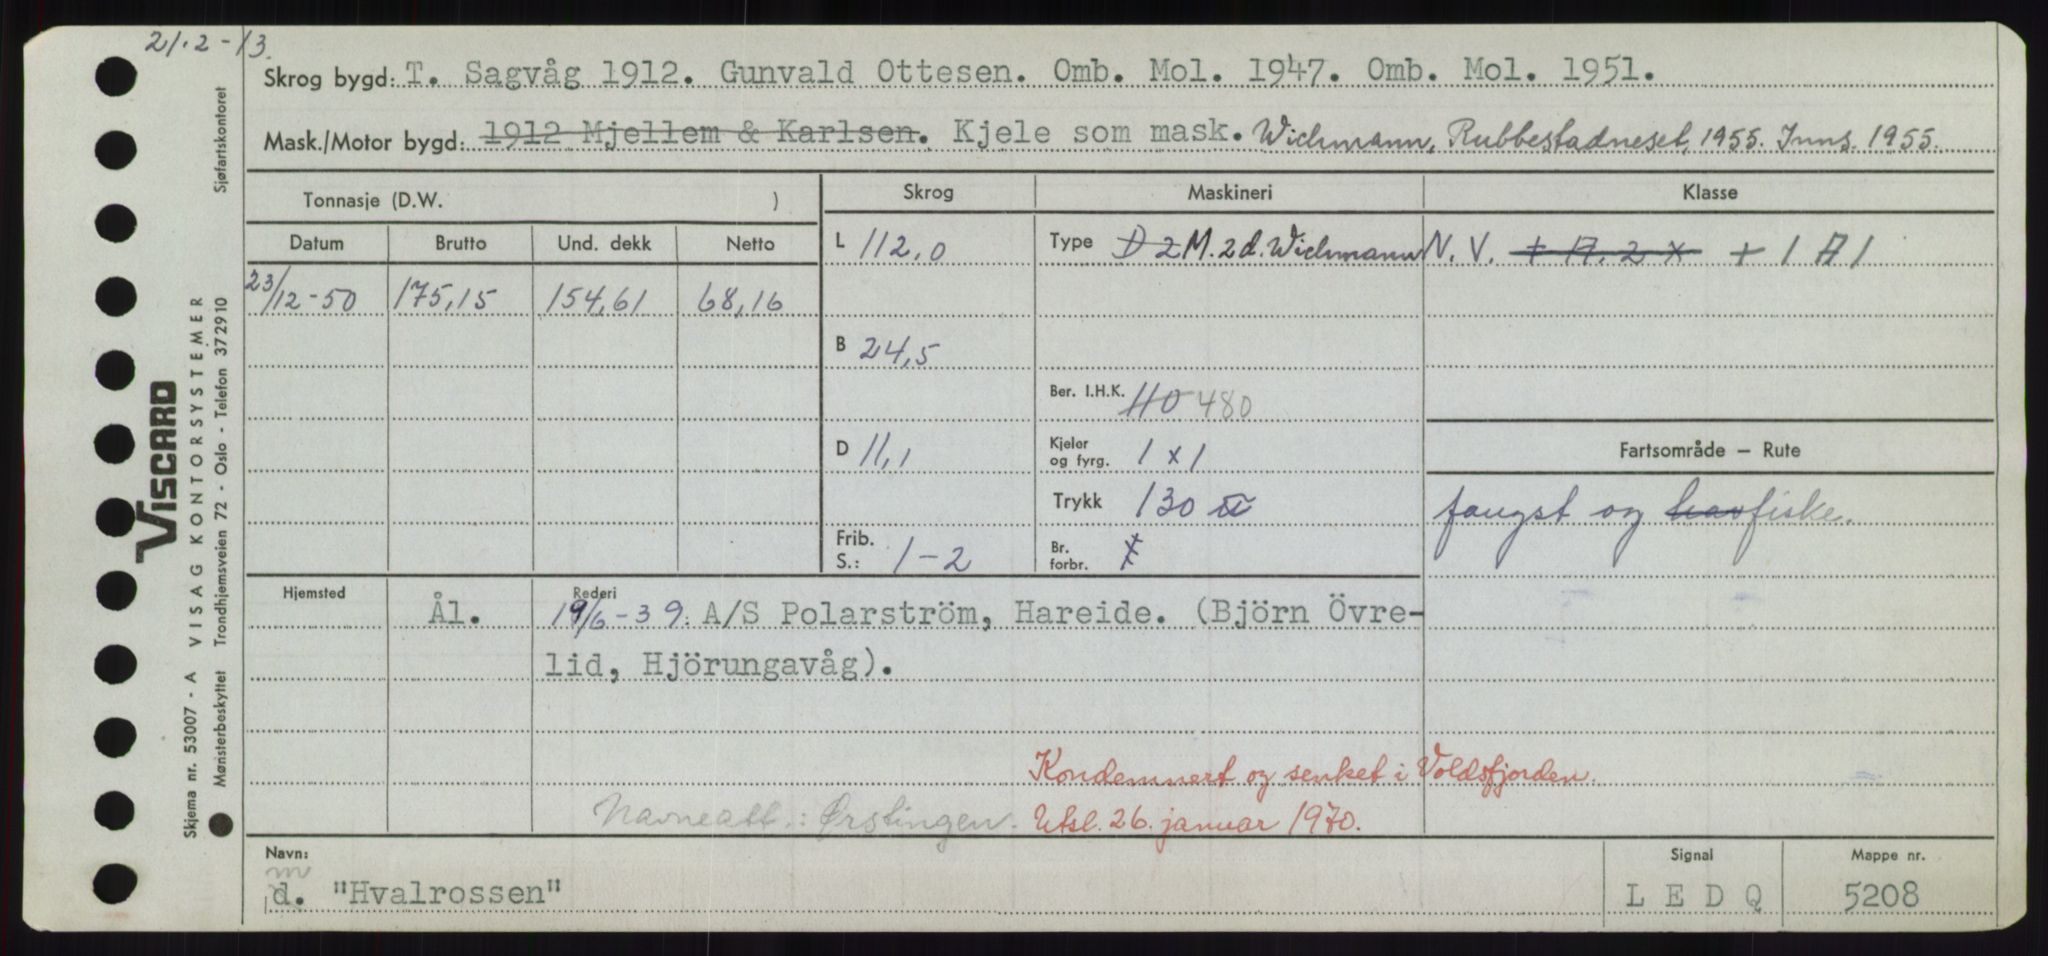 21.2-13.
Skrog bygd: T. Sagvåg 1912. Gunvald Ottesen. Omb. Mol. 1947. Omb. Mol. 1951.
Mask./Motor bygd: 1912 Mjellem & Karlsen. Kjele som mask. Wichmann, Rubbestadneset, 1955. Inns. 1955.
Tonnasje (D.W. )
Skrog
Maskineri
Klasse
Datum Brutto Und. dekk Netto
L 112,0
Type D 2 M. 2 d. Wichmann
N. V. + A. 2 x + 1 A 1
23/12-50 175,15 154,61 68,16
B 24,5
Ber. I.H.K. 110 480
D 11,1
Kjeler og fyrg. 1 x 1
Fartsområde — Rute
Trykk 130
fangst og havfiske.
Frib. S.: 1-2
Br. forbr.
Hjemsted
Rederi
Ål. 19/6-39. A/S Polarström, Hareide. (Björn Övre-
lid, Hjörungavåg).
Kondemnert og senket i Voldsfjorden.
Navneatt.: Ørstingen. Utsl. 26. januar 1970.
Navn:
Signal
Mappe nr.
m
d. "Hvalrossen"
L E D Q
5208
Sjøfartskontoret
VISCARD
Skjema nr. 53007 - A VISAG KONTORSYSTEMER
Mønsterbeskyttet Trondhjemsveien 72 - Oslo - Telefon 372910